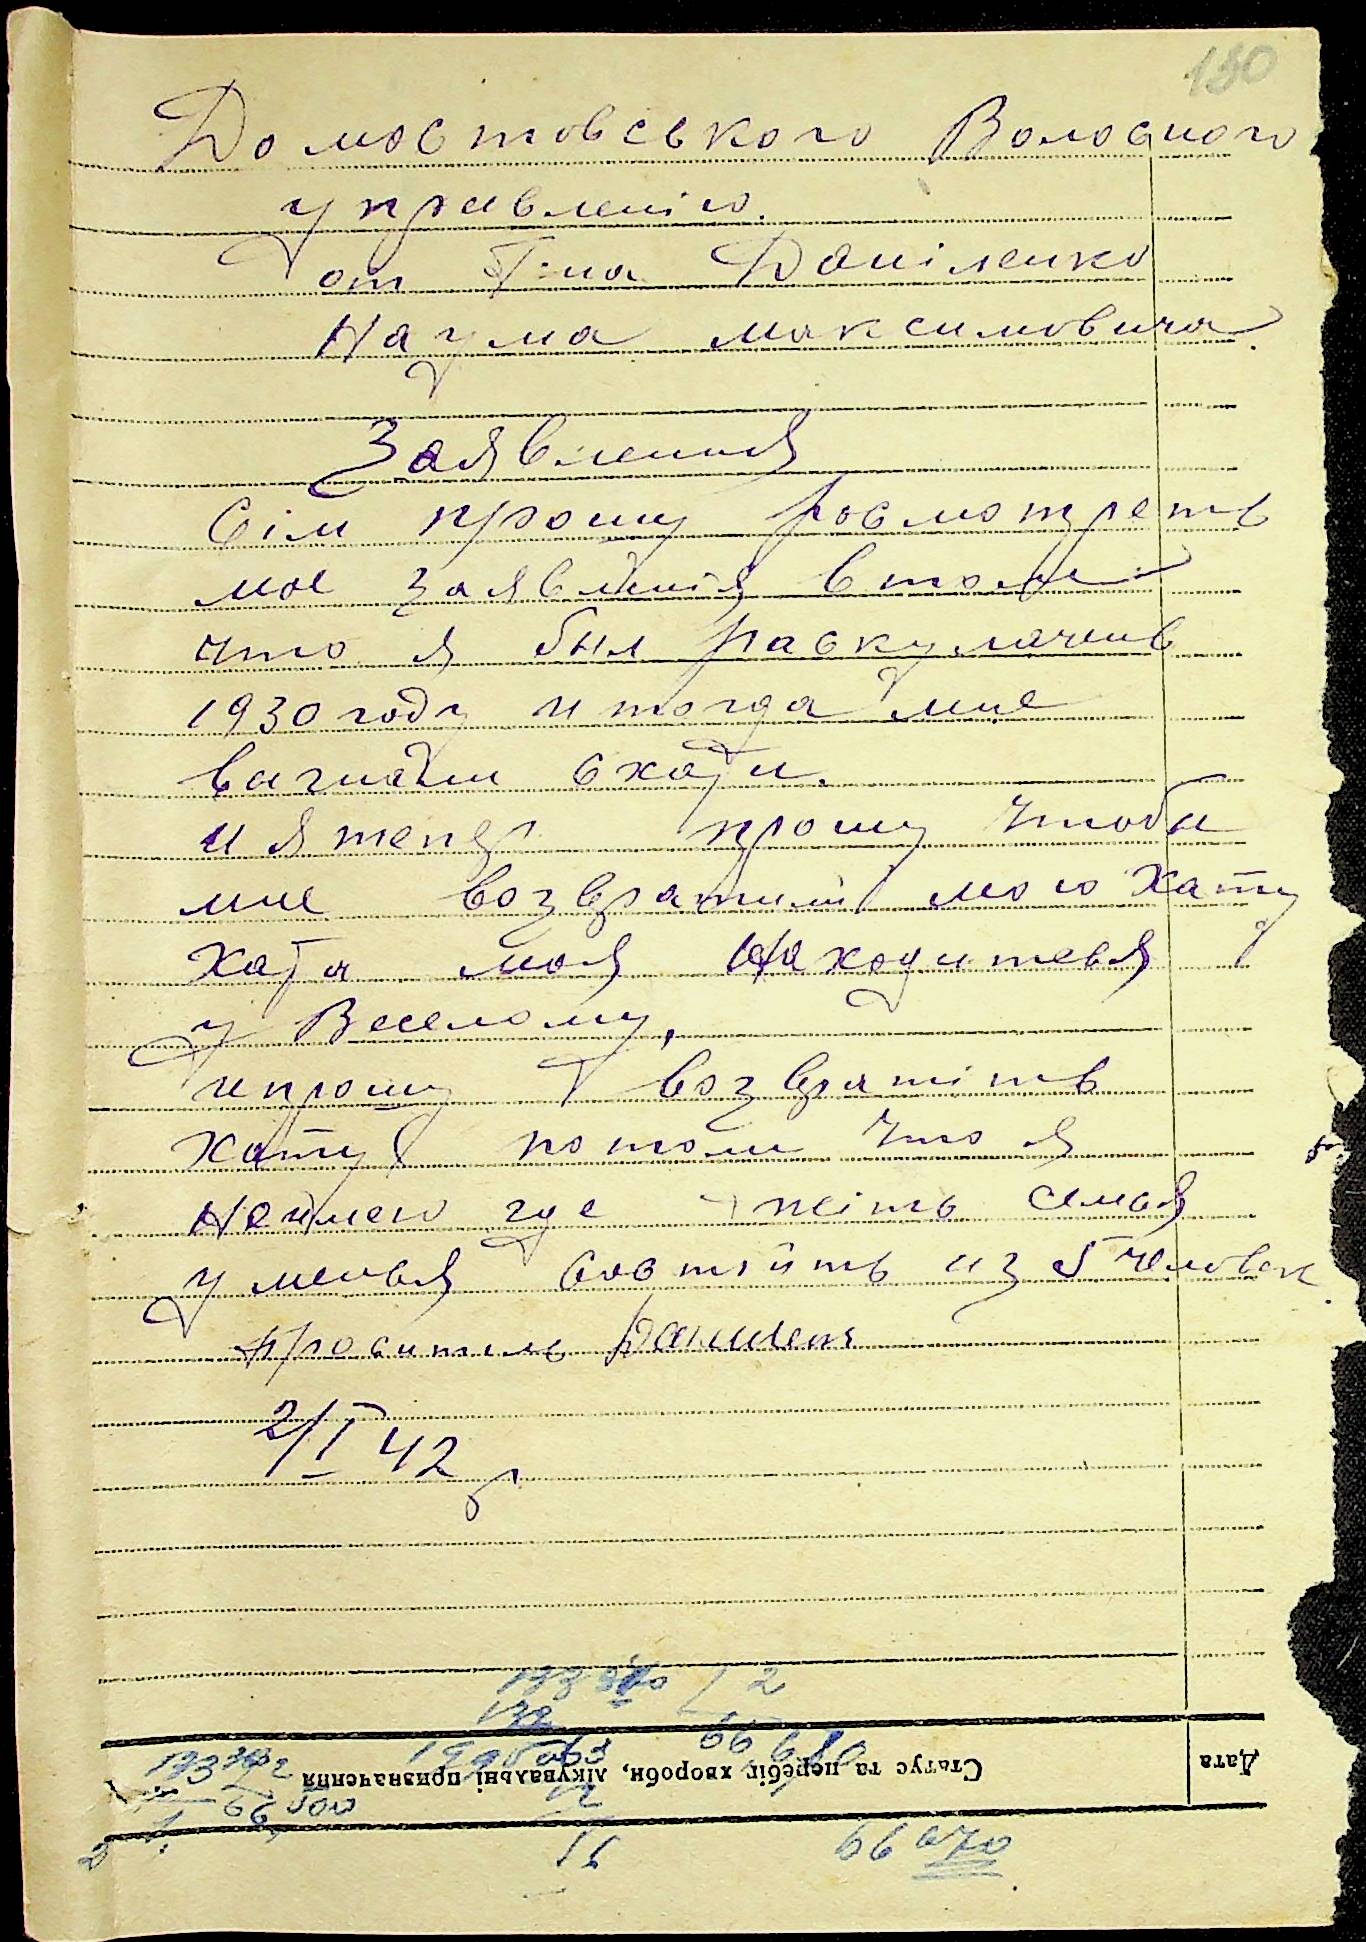 130
Домостовського Волосного
управленію.
от Г-на Даніленко
Наума максимовича.
Заявленія
Сім прошу росмотреть
мое заявленія втом
что я был раскулачен в
1930 году и тогда мне
вагнали схати.
и я тепер прошу чтоба
мне возвратили мою хату
Хата моя находится
у Веселому,
и прошу возвратіть
хату потом что я
неимею где жіть семья
у меня состоить из 5 человек
проситель Даниленк
2/I 42 г
66 670
Статус та перебіг хвороби, лікувальні призначення
Дата